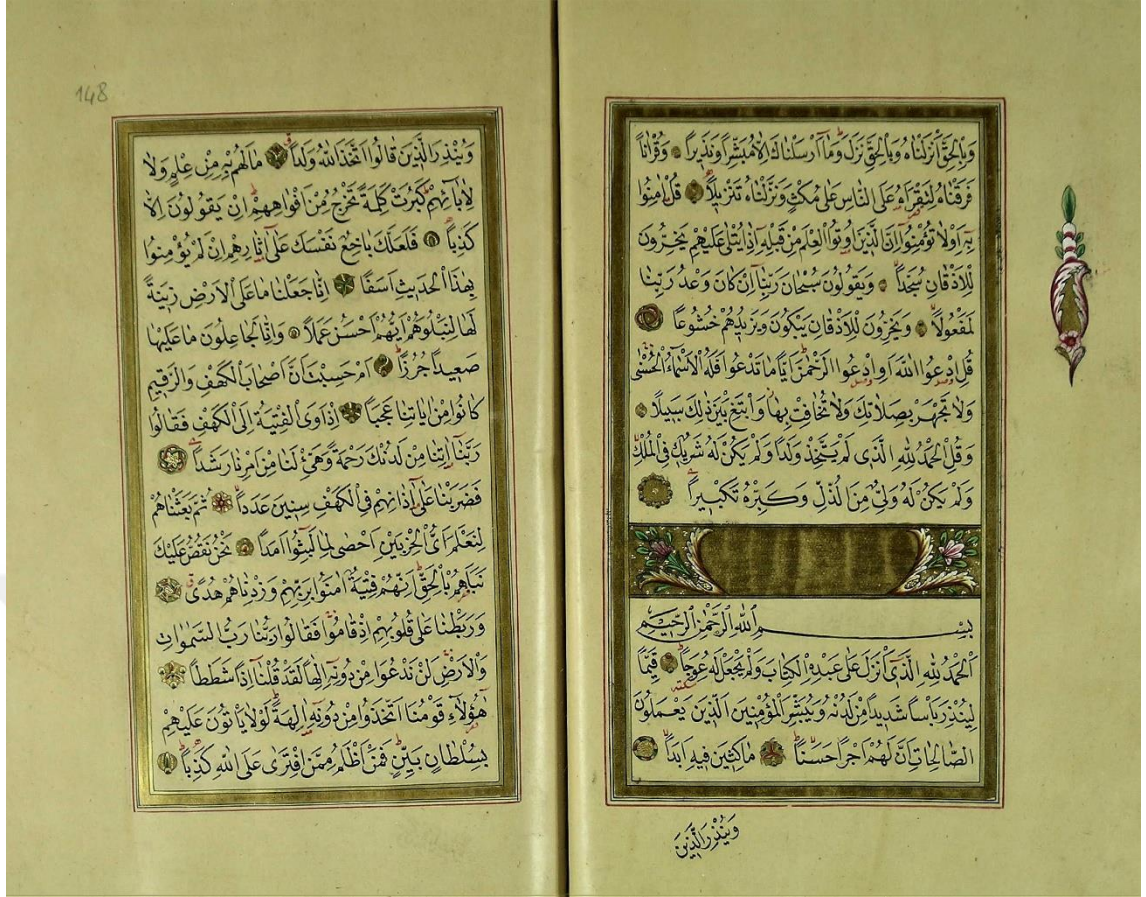 وَبِالْحَقِّ اَنْزَلْنَاهُ وَبِالْحَقِّ نَزَلَ وَمَا اَرْسَلْنَاكَ اِلَّا مُبَشِّراً وَنَذِيراً وَقُرْاٰناً
فَرَقْنَاهُ لِتَقْرَاَهُ عَلَى النَّاسِ عَلٰى مُكْثٍ وَنَزَّلْنَاهُ تَنْزِيلاً قُلْ اٰمِنُوا
بِهِ اَوْ لَا تُؤْمِنُوا اِنَّ الَّذِينَ اُوتُوا الْعِلْمَ مِنْ قَبْلِهِ اِذَا يُتْلٰى عَلَيْهِمْ يَخِرُّونَ
لِلْاَذْقَانِ سُجَّداً وَيَقُولُونَ سُبْحَانَ رَبِّنَا اِنْ كَانَ وَعْدُ رَبِّنَا
لَمَفْعُولاً وَيَخِرُّونَ لِلْاَذْقَانِ يَبْكُونَ وَيَزِيدُهُمْ خُشُوعاً
قُلِ ادْعُوا اللّٰهَ اَوِ ادْعُوا الرَّحْمٰنَ اَيًّا مَا تَدْعُوا فَلَهُ الْاَسْمَاءُ الْحُسْنٰى
وَلَا تَجْهَرْ بِصَلَاتِكَ وَلَا تُخَافِتْ بِهَا وَابْتَغِ بَيْنَ ذٰلِكَ سَبِيلاً
وَقُلِ الْحَمْدُ لِلّٰهِ الَّذِى لَمْ يَتَّخِذْ وَلَداً وَلَمْ يَكُنْ لَهُ شَرِيكٌ فِى الْمُلْكِ
وَلَمْ يَكُنْ لَهُ وَلِىٌّ مِنَ الذُّلِّ وَكَبِّرْهُ تَكْبِيراً
بِسْمِ اللّٰهِ الرَّحْمٰنِ الرَّحِيمِ
اَلْحَمْدُ لِلّٰهِ الَّذِى اَنْزَلَ عَلٰى عَبْدِهِ الْكِتَابَ وَلَمْ يَجْعَلْ لَهُ عِوَجاً قَيِّماً
لِيُنْذِرَ بَاْساً شَدِيداً مِنْ لَدُنْهُ وَيُبَشِّرَ الْمُؤْمِنِينَ الَّذِينَ يَعْمَلُونَ
الصَّالِحَاتِ اَنَّ لَهُمْ اَجْراً حَسَناً مَاكِثِينَ فِيهِ اَبَداً
وَيُنْذِرَ الَّذِينَ
148
وَيُنْذِرَ الَّذِينَ قَالُوا اتَّخَذَ اللّٰهُ وَلَداً مَا لَهُمْ بِهِ مِنْ عِلْمٍ وَلَا
لِاٰبَائِهِمْ كَبُرَتْ كَلِمَةً تَخْرُجُ مِنْ اَفْوَاهِهِمْ اِنْ يَقُولُونَ اِلَّا
كَذِباً فَلَعَلَّكَ بَاخِعٌ نَفْسَكَ عَلٰى اٰثَارِهِمْ اِنْ لَمْ يُؤْمِنُوا
بِهٰذَا الْحَدِيثِ اَسَفاً اِنَّا جَعَلْنَا مَا عَلَى الْاَرْضِ زِينَةً
لَهَا لِنَبْلُوَهُمْ اَيُّهُمْ اَحْسَنُ عَمَلاً وَاِنَّا لَجَاعِلُونَ مَا عَلَيْهَا
صَعِيداً جُرُزاً اَمْ حَسِبْتَ اَنَّ اَصْحَابَ الْكَهْفِ وَالرَّقِيمِ
كَانُوا مِنْ اٰيَاتِنَا عَجَباً اِذْ اَوَى الْفِتْيَةُ اِلَى الْكَهْفِ فَقَالُوا
رَبَّنَا اٰتِنَا مِنْ لَدُنْكَ رَحْمَةً وَهَيِّئْ لَنَا مِنْ اَمْرِنَا رَشَداً
فَضَرَبْنَا عَلٰى اٰذَانِهِمْ فِى الْكَهْفِ سِنِينَ عَدَداً ثُمَّ بَعَثْنَاهُمْ
لِنَعْلَمَ اَىُّ الْحِزْبَيْنِ اَحْصٰى لِمَا لَبِثُوا اَمَداً نَحْنُ نَقُصُّ عَلَيْكَ
نَبَاَهُمْ بِالْحَقِّ اِنَّهُمْ فِتْيَةٌ اٰمَنُوا بِرَبِّهِمْ وَزِدْنَاهُمْ هُدًى
وَرَبَطْنَا عَلٰى قُلُوبِهِمْ اِذْ قَامُوا فَقَالُوا رَبُّنَا رَبُّ السَّمٰوَاتِ
وَالْاَرْضِ لَنْ نَدْعُوَا مِنْ دُونِهِ اِلٰهاً لَقَدْ قُلْنَا اِذاً شَطَطاً
هٰؤُلَاءِ قَوْمُنَا اتَّخَذُوا مِنْ دُونِهِ اٰلِهَةً لَوْلَا يَاْتُونَ عَلَيْهِمْ
بِسُلْطَانٍ بَيِّنٍ فَمَنْ اَظْلَمُ مِمَّنِ افْتَرٰى عَلَى اللّٰهِ كَذِباً